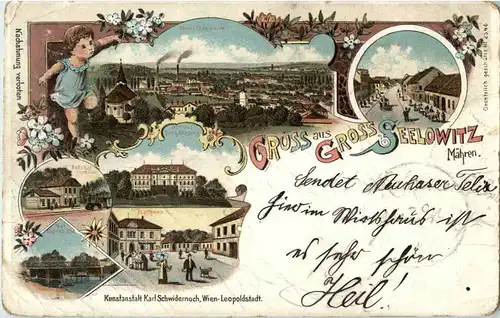 Nachahmung verboten
Gesetzlich geschützt
GRUSS aus GROSS SEELOWITZ
Mähren.
Sendet Neuhaser Felix
hier im Wirtshaus ist
es sehr schön
Heil!
Kunstanstalt Karl Schwidernoch, Wien-Leopoldstadt.